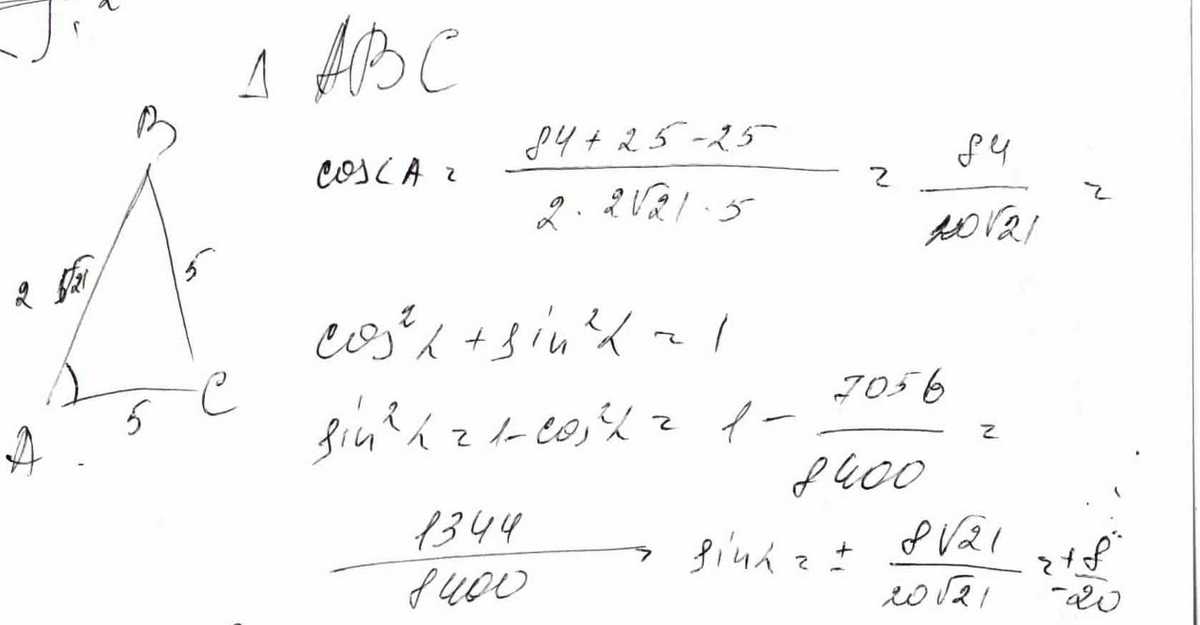 Δ ABC
B
cos∠A = (84 + 25 - 25) / (2 · 2√21 · 5) = 84 / (20√21) =
2 √21
5
cos²α + sin²α = 1
A
5
C
sin²α = 1 - cos²α = 1 - 7056 / 8400 =
1344 / 8400 → sinα = ± 8√21 / (20√21) = ± 8 / 20